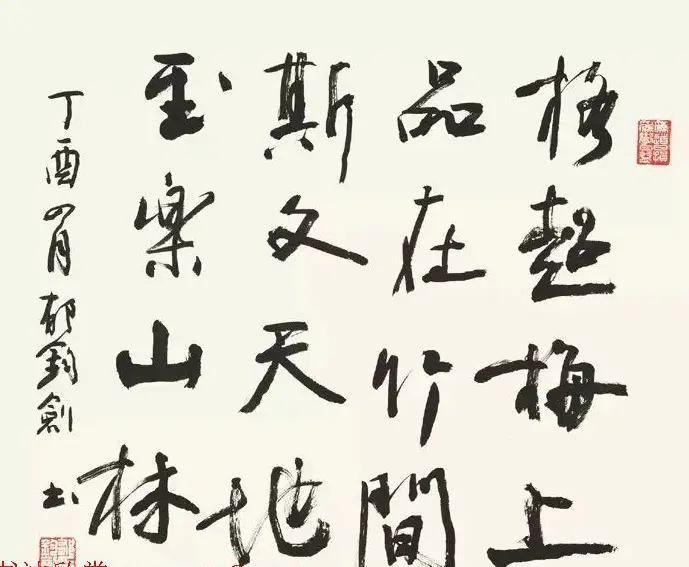 格超梅上
品在竹間
斯文天地
至樂山林
丁酉四月郁鈞劍书